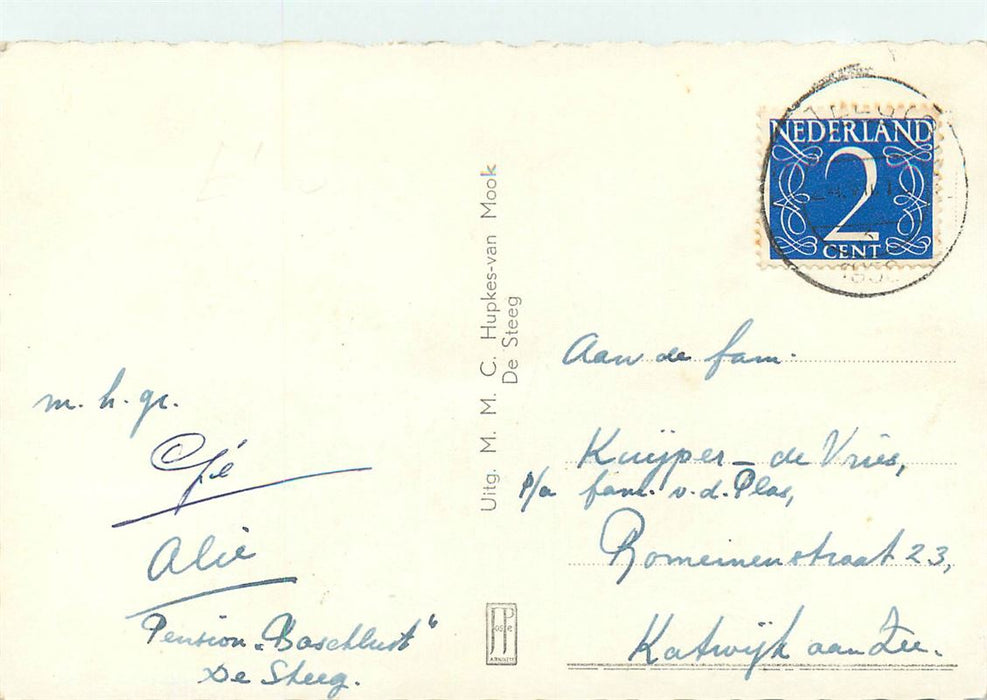 m. h. gr.
Cjé
Alie
Pension „Boschlust"
De Steeg.
Uitg. M. M. C. Hupkes-van Mook
De Steeg
JP
ARNHEM
NEDERLAND
2
CENT
Aan de fam.
Kuijper - de Vries,
p/a fam. v. d. Plas,
Romeinenstraat 23,
Katwijk aan Zee.